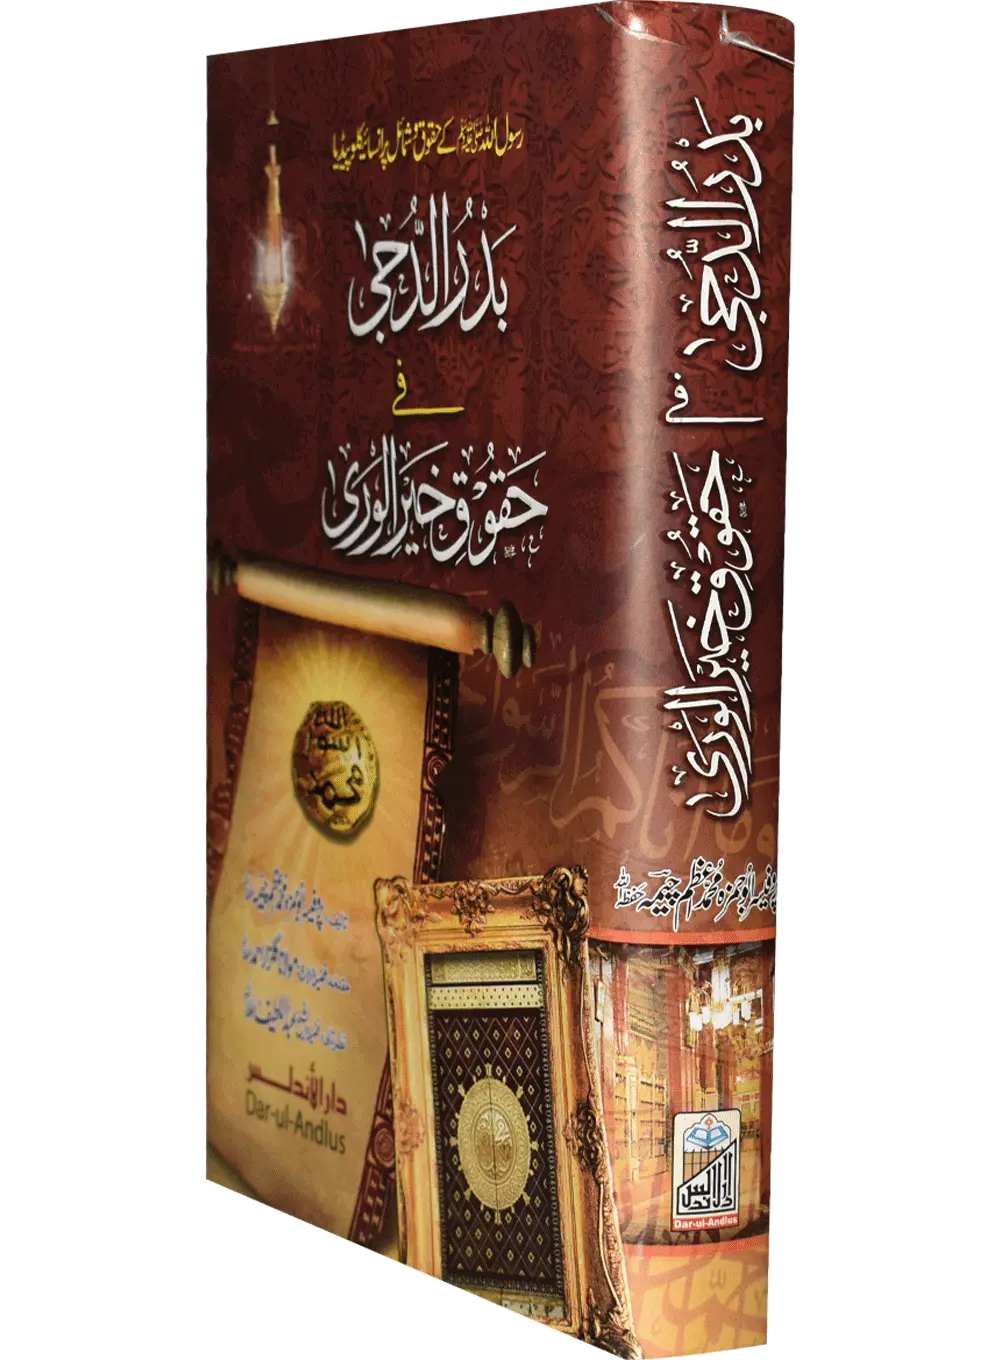 رسول اللہ ﷺ کے حقوق و شمائل پر انسائیکلوپیڈیا
بَدْرُ الدُّجٰی
فی
حقوق خیر الورٰی ﷺ
اللہ
رسول
محمد
دار الأندلس
Dar-ul-Andlus
بَدْرُ الدُّجٰی فی حقوق خیر الورٰی ﷺ
پروفیسر ابو حمزہ محمد اعظم چیمہ حفظہ اللہ
دارالاندلس
Dar-ul-Andlus